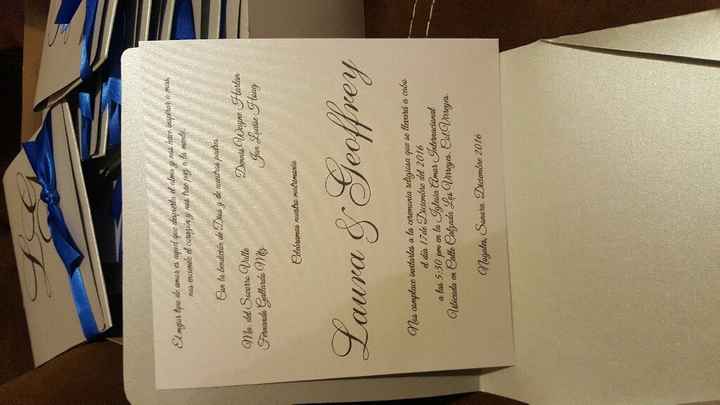 El mejor tipo de amor es aquel que despierta el alma y nos hace aspirar a mas,
nos enciende el corazón y nos trae paz a la mente.
Con la bendición de Dios y de nuestros padres
Ma. del Socorro Valle
Fernando Gallardo Mtz
Dennis Wayne Harlan
Jan Luttie Haag
Celebremos nuestro matrimonio
Laura & Geoffrey
Nos complace invitarlos a la ceremonia religiosa que se llevará a cabo
el día 17 de Diciembre del 2016
a las 5:30 pm en la Iglesia Amor Internacional
Ubicada en Calle Calzada Los Virreyes, Col. Virreyes.
Nogales, Sonora. Diciembre 2016
L G